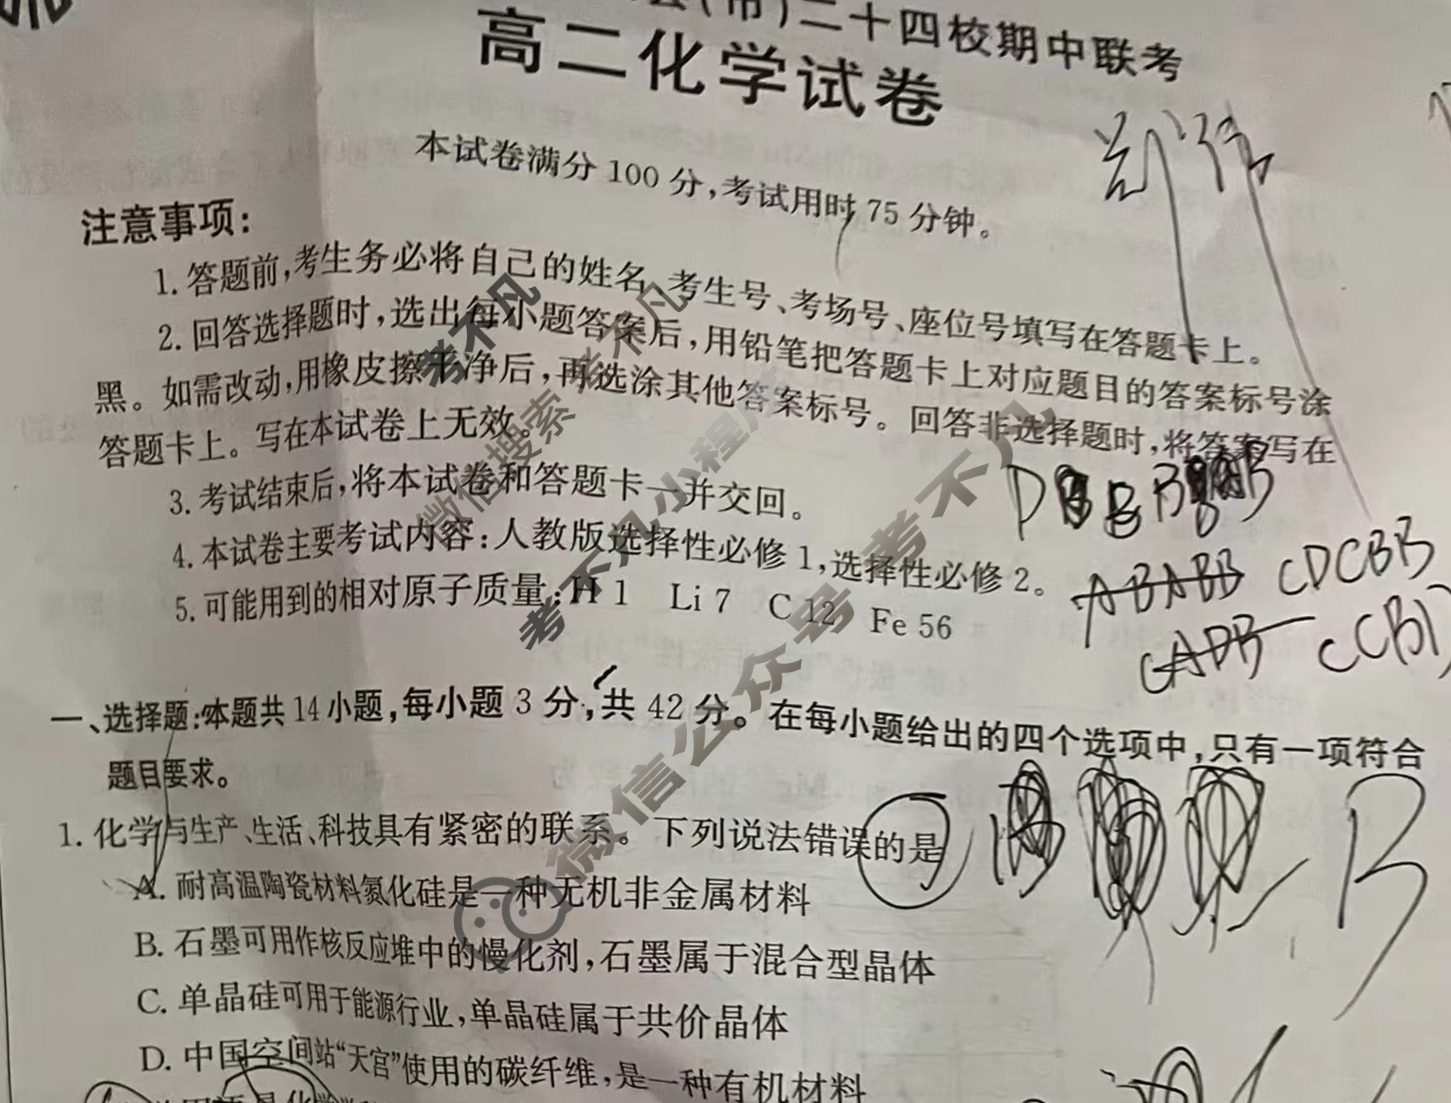 (市)二十四校期中联考
高二化学试卷
本试卷满分100分,考试用时75分钟。
注意事项:
1. 答题前,考生务必将自己的姓名、考生号、考场号、座位号填写在答题卡上。
2. 回答选择题时,选出每小题答案后,用铅笔把答题卡上对应题目的答案标号涂
黑。如需改动,用橡皮擦干净后,再选涂其他答案标号。回答非选择题时,将答案写在
答题卡上。写在本试卷上无效。
3. 考试结束后,将本试卷和答题卡一并交回。
4. 本试卷主要考试内容:人教版选择性必修1,选择性必修2。
5. 可能用到的相对原子质量:H 1 Li 7 C 12 Fe 56
ABABB CDCBB
CADB
一、选择题:本题共14小题,每小题3分,共42分。在每小题给出的四个选项中,只有一项符合
题目要求。
1. 化学与生产、生活、科技具有紧密的联系。下列说法错误的是
B
A. 耐高温陶瓷材料氮化硅是一种无机非金属材料
B. 石墨可用作核反应堆中的慢化剂,石墨属于混合型晶体
C. 单晶硅可用于能源行业,单晶硅属于共价晶体
D. 中国空间站“天宫”使用的碳纤维,是一种有机材料
考不凡
微信搜索 考不凡
考不凡小程序
微信公众号 考不凡